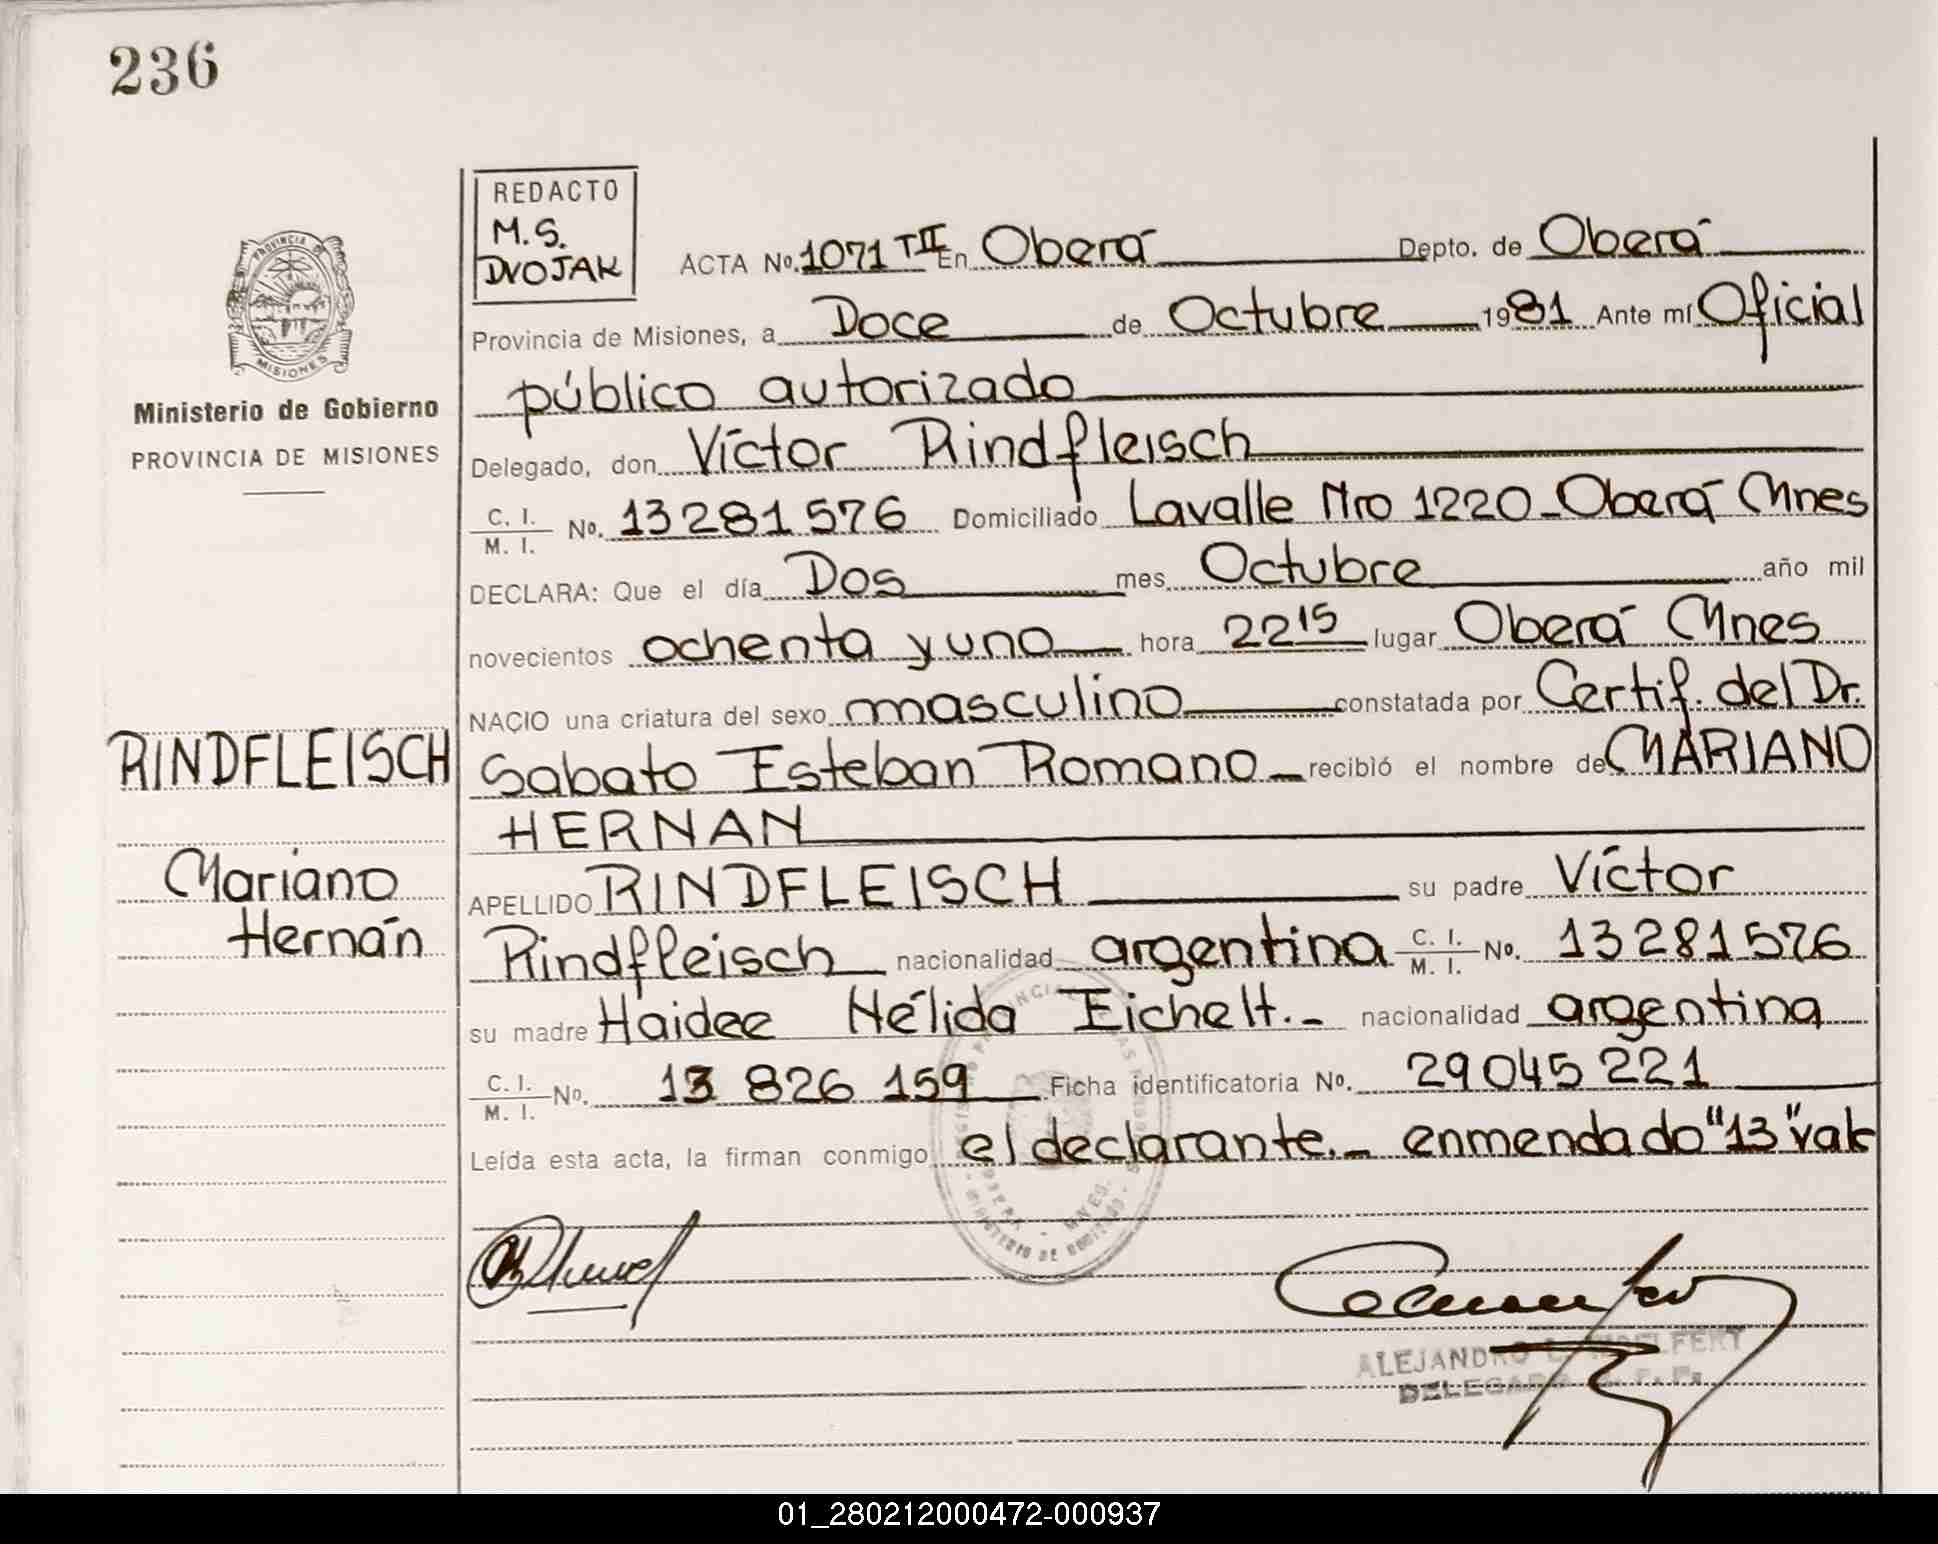 236
REDACTO
M.S.
DVOJAK
PROVINCIA DE
MISIONES
Ministerio de Gobierno
PROVINCIA DE MISIONES
ACTA No. 1071 TII En Oberá Depto. de Oberá
Provincia de Misiones, a Doce de Octubre 1981 Ante mí Oficial
público autorizado
Delegado, don Víctor Rindfleisch
C. I. / M. I. No. 13281576 Domiciliado Lavalle Nro 1220 - Oberá Mnes
DECLARA: Que el día Dos mes Octubre año mil
novecientos ochenta y uno hora 22 15 lugar Oberá Mnes
NACIO una criatura del sexo masculino constatada por Certif. del Dr.
RINDFLEISCH
Sabato Esteban Romano recibió el nombre de MARIANO
HERNAN
Mariano
Hernán
APELLIDO RINDFLEISCH su padre Víctor
Rindfleisch nacionalidad argentina C. I. / M. I. No. 13281576
su madre Haidee Nélida Eichelt.- nacionalidad argentina
C. I. / M. I. No. 13 826 159 Ficha identificatoria No. 29045221
Leída esta acta, la firman conmigo el declarante.- enmendado "13" vale
MNES.
MINISTERIO DE GOBIERNO
ALEJANDRO
DELEGADO
01_280212000472-000937